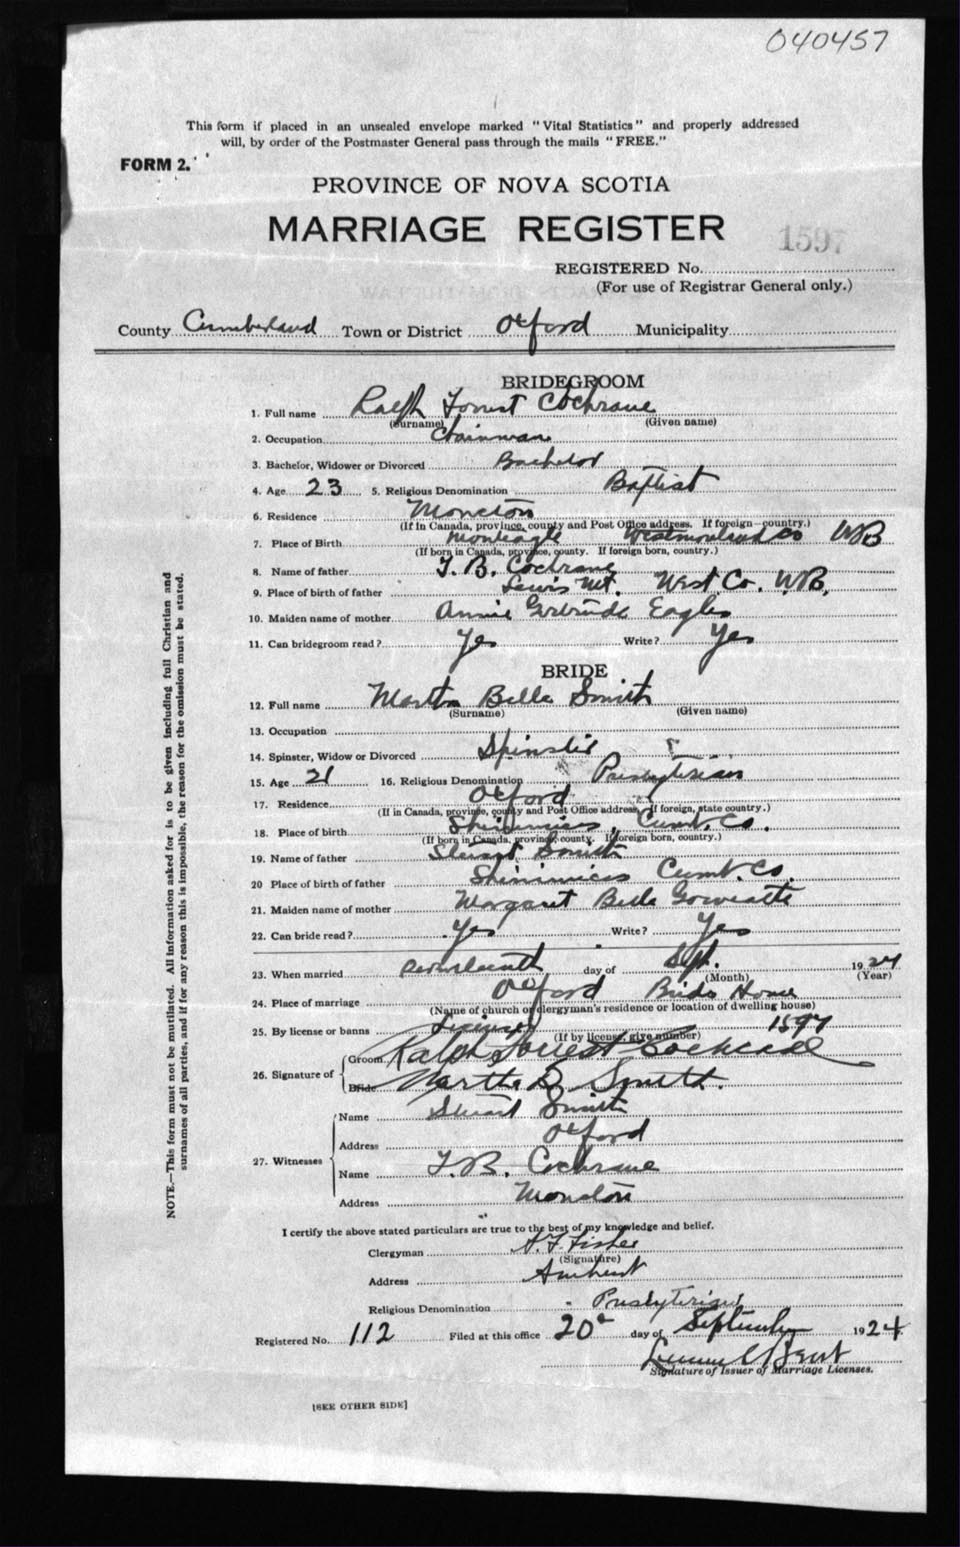 040457
This form if placed in an unsealed envelope marked "Vital Statistics" and properly addressed
will, by order of the Postmaster General pass through the mails "FREE."
FORM 2.
PROVINCE OF NOVA SCOTIA
MARRIAGE REGISTER
1597
REGISTERED No.
(For use of Registrar General only.)
County Cumberland Town or District Oxford Municipality
BRIDEGROOM
1. Full name Ralph Forrest Cochrane
(Surname) (Given name)
2. Occupation Chainman
3. Bachelor, Widower or Divorced Bachelor
4. Age 23 5. Religious Denomination Baptist
6. Residence Moncton
(If in Canada, province, county and Post Office address. If foreign—country.)
7. Place of Birth Monteagle Westmorland Co NB
(If born in Canada, province, county. If foreign born, country.)
8. Name of father T. B. Cochrane
9. Place of birth of father Lewis Mt. West Co. N.B.
10. Maiden name of mother Annie Gertrude Eagles
11. Can bridegroom read? Yes Write? Yes
BRIDE
12. Full name Martha Bella Smith
(Surname) (Given name)
13. Occupation
14. Spinster, Widow or Divorced Spinster
15. Age 21 16. Religious Denomination Presbyterian
17. Residence Oxford
(If in Canada, province, county and Post Office address, If foreign, state country.)
18. Place of birth Shinimicas Cumb. Co.
(If born in Canada, province, county. If foreign born, country.)
19. Name of father Stewart Smith
20 Place of birth of father Shinimicas Cumb. Co.
21. Maiden name of mother Margaret Bella
22. Can bride read? Yes Write? Yes
23. When married Seventeenth day of Sept. 1924
(Month) (Year)
24. Place of marriage Oxford Brids Home
(Name of church or clergyman's residence or location of dwelling house)
25. By license or banns License 1597
(If by license, give number)
26. Signature of Groom Ralph Forrest Cochrane
Bride Martha B. Smith.
27. Witnesses
Name Stewart Smith
Address Oxford
Name T. B. Cochrane
Address Moncton
I certify the above stated particulars are true to the best of my knowledge and belief.
Clergyman A. F. Fisher
(Signature)
Address Amherst
Religious Denomination Presbyterian
Registered No. 112 Filed at this office 20 day of September 1924
Signature of Issuer of Marriage Licenses.
[SEE OTHER SIDE]
NOTE.—This form must not be mutilated. All information asked for is to be given including full Christian and
surnames of all parties, and if for any reason this is impossible, the reason for the omission must be stated.